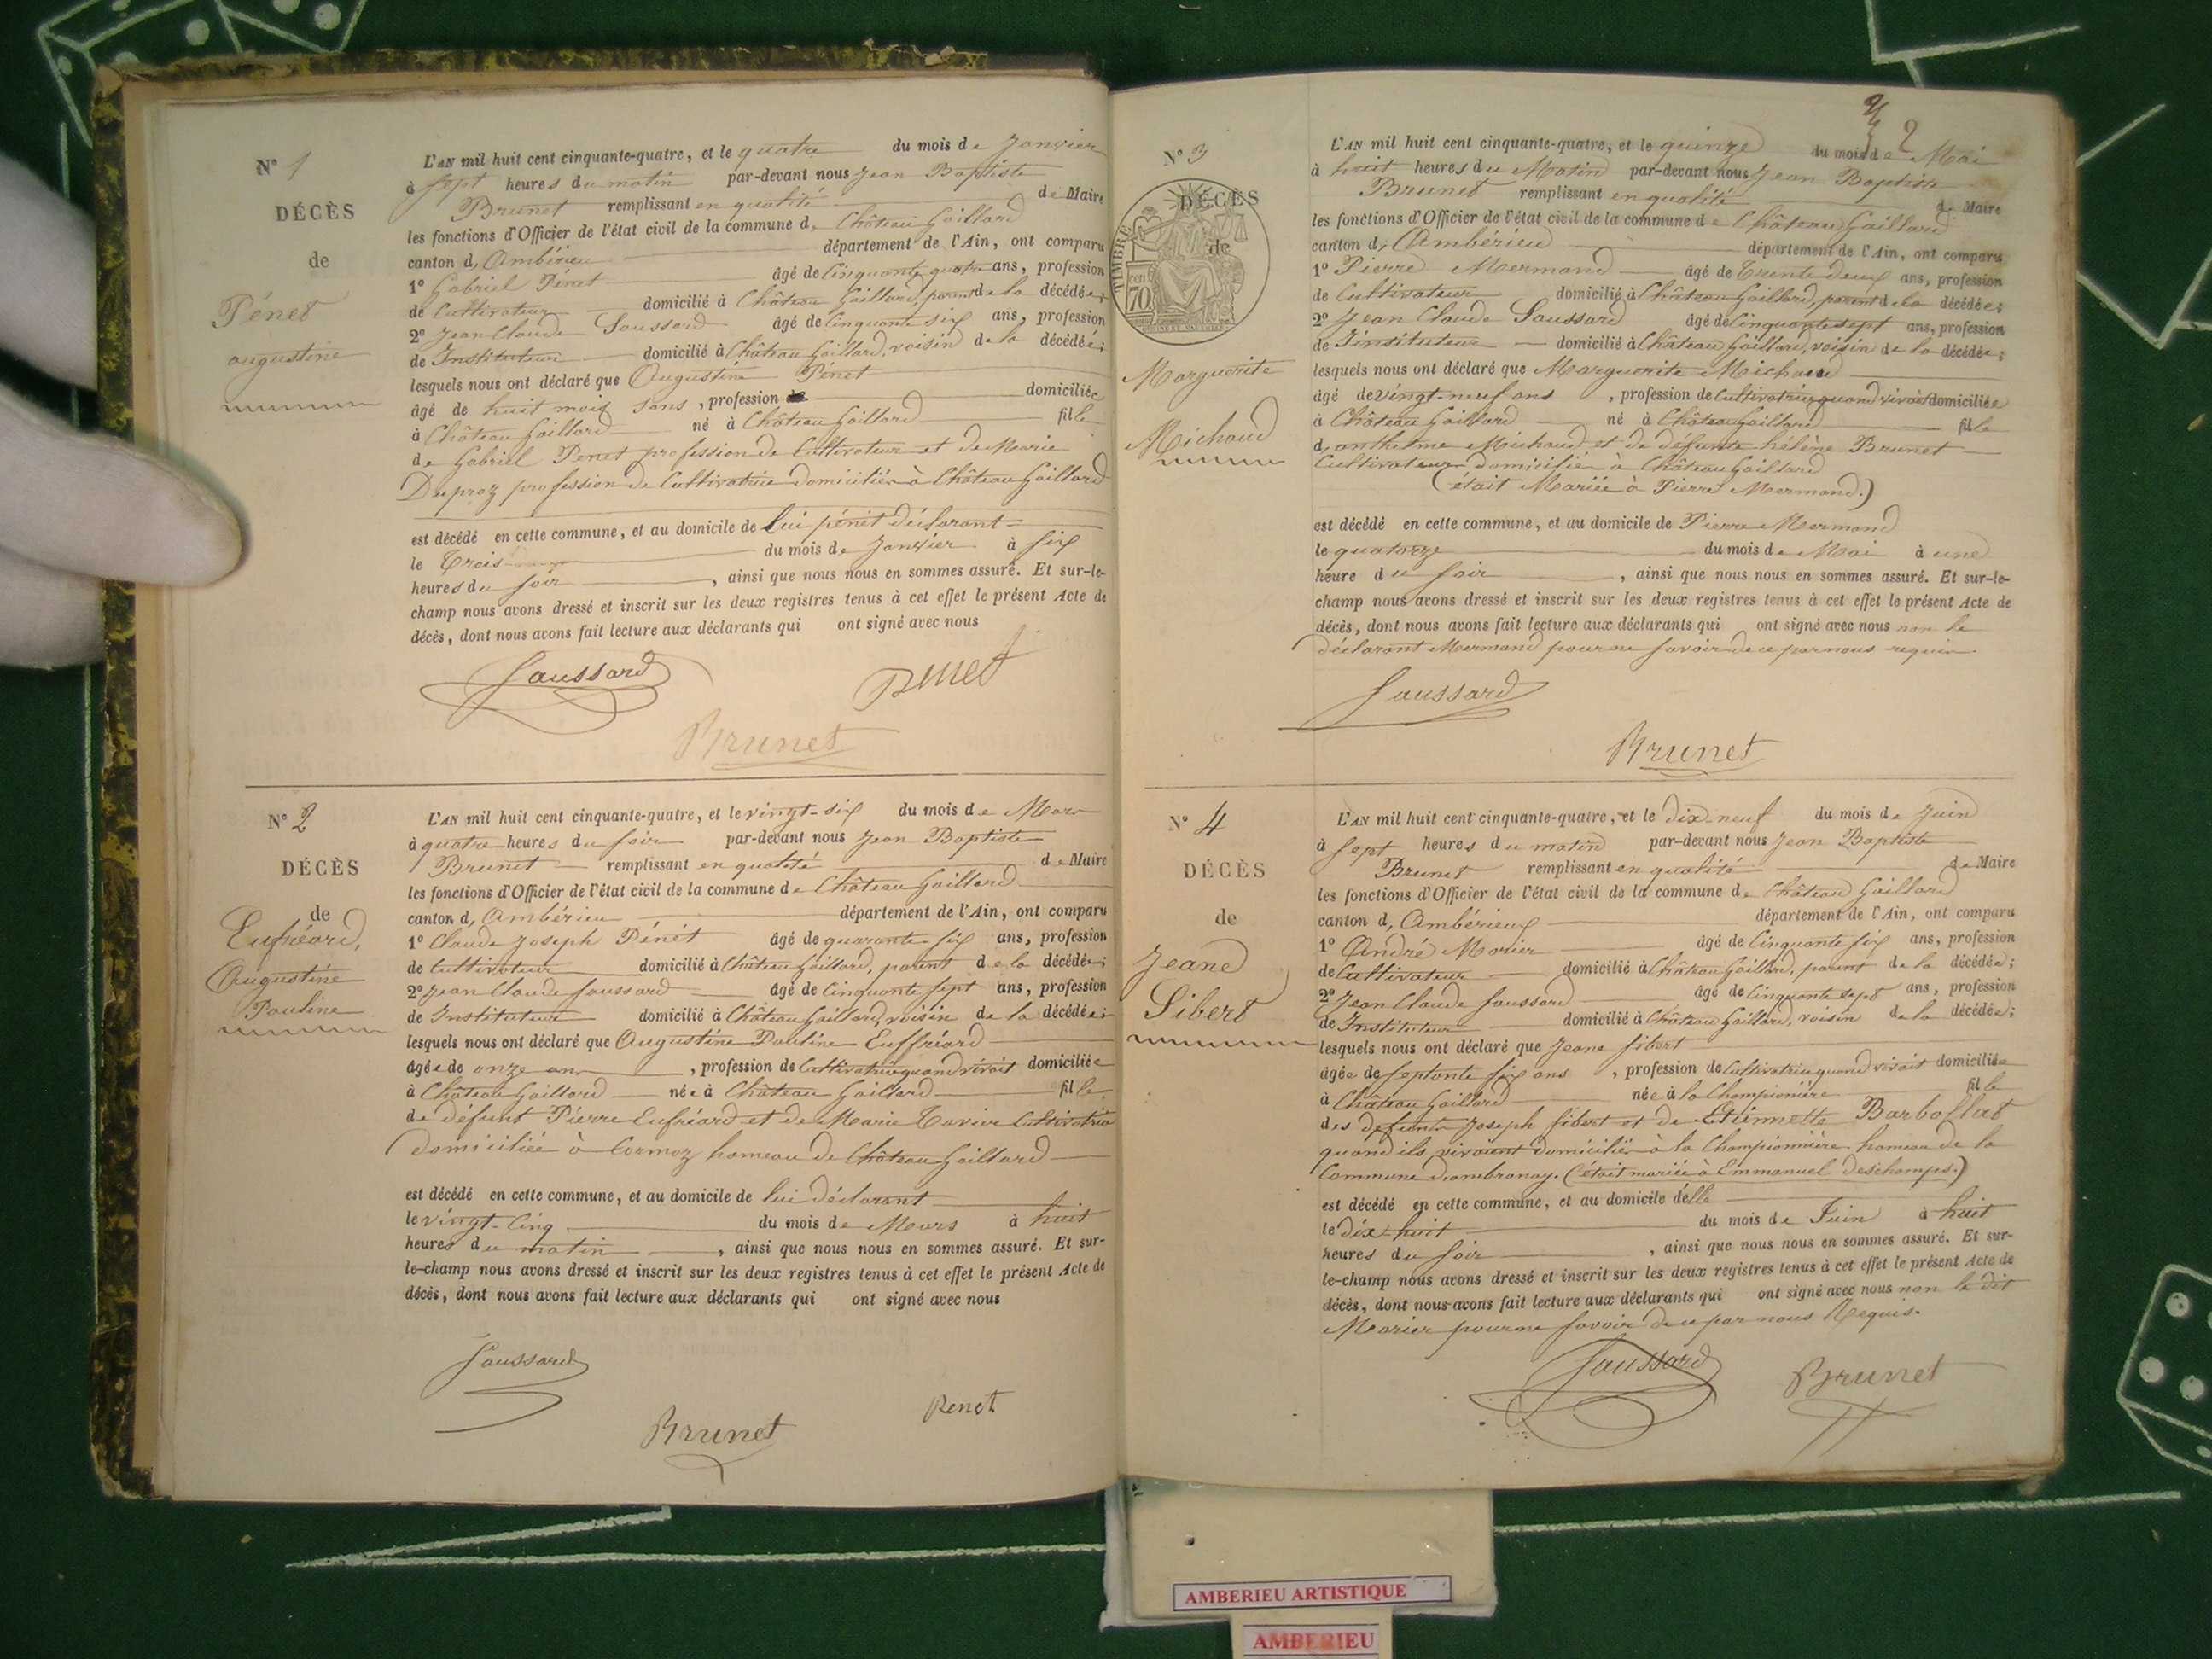 N° 1
DÉCÈS
de
Pénet
augustine
L'AN mil huit cent cinquante-quatre, et le quatre du mois de Janvier
à sept heures du matin par-devant nous Jean Baptiste
Brunet remplissant en qualité de Maire
les fonctions d'Officier de l'état civil de la commune de Château Gaillard
canton d, Ambérieu département de l'Ain, ont comparu
1° Gabriel Pénet âgé de Cinquante quatre ans, profession
de Cultivateur domicilié à Château Gaillard, parent de la décédée;
2° Jean Claude Saussard âgé de Cinquante six ans, profession
de Instituteur domicilié à Château Gaillard, voisin de la décédée;
lesquels nous ont déclaré que Augustine Pénet
âgé de huit mois sans, profession domiciliée
à Château Gaillard né à Château Gaillard fille
de Gabriel Penet profession de Cultivateur et de Marie
Dupraz profession de Cultivatrice domiciliés à Château Gaillard
est décédé en cette commune, et au domicile de lui pénet déclarant
le Trois du mois de Janvier à six
heures du soir, ainsi que nous nous en sommes assuré. Et sur-le-
champ nous avons dressé et inscrit sur les deux registres tenus à cet effet le présent Acte de
décès, dont nous avons fait lecture aux déclarants qui ont signé avec nous
Saussard Penet
Brunet
N° 2
DÉCÈS
de
Eufréard,
Augustine
Pauline
L'AN mil huit cent cinquante-quatre, et le vingt-six du mois de Mars
à quatre heures du soir par-devant nous Jean Baptiste
Brunet remplissant en qualité de Maire
les fonctions d'Officier de l'état civil de la commune de Château Gaillard
canton d, Ambérieu département de l'Ain, ont comparu
1° Claude Joseph Pénet âgé de quarante six ans, profession
de Cultivateur domicilié à Château Gaillard, parent de la décédée;
2° Jean Claude Saussard âgé de Cinquante sept ans, profession
de Instituteur domicilié à Château Gaillard, voisin de la décédée;
lesquels nous ont déclaré que Augustine Pauline Euffréard
âgée de onze ans, profession de Cultivatrice quand vivait domiciliée
à Château Gaillard née à Château Gaillard fille
de défunt Pierre Eufréard et de Marie Tavier Cultivatrice
domiciliée à Cormoz hameau de Château Gaillard
est décédé en cette commune, et au domicile de lui déclarant
le vingt-Cinq du mois de Mars à huit
heures du matin, ainsi que nous nous en sommes assuré. Et sur-
le-champ nous avons dressé et inscrit sur les deux registres tenus à cet effet le présent Acte de
décès, dont nous avons fait lecture aux déclarants qui ont signé avec nous
Saussard
Brunet Penet
2
N° 3
DÉCÈS
de
TIMBRE
70
Marguerite
Michaud
L'AN mil huit cent cinquante-quatre, et le quinze du mois de Mai
à huit heures du Matin par-devant nous Jean Baptiste
Brunet remplissant en qualité de Maire
les fonctions d'Officier de l'état civil de la commune de Château Gaillard
canton d, Ambérieu département de l'Ain, ont comparu
1° Pierre Mermand âgé de Trente deux ans, profession
de Cultivateur domicilié à Château Gaillard, parent de la décédée;
2° Jean Claude Saussard âgé de Cinquante sept ans, profession
de Instituteur domicilié à Château Gaillard, voisin de la décédée;
lesquels nous ont déclaré que Marguerite Michaud
âgé de vingt-neuf ans, profession de Cultivatrice quand vivait domiciliée
à Château Gaillard né à Château Gaillard fille
d, anthelme Michaud et de défunte hélène Brunet
Cultivateur domicilié à Château Gaillard
(était Mariée à Pierre Mermand.)
est décédé en cette commune, et au domicile de Pierre Mermand
le quatorze du mois de Mai à une
heure du soir, ainsi que nous nous en sommes assuré. Et sur-le-
champ nous avons dressé et inscrit sur les deux registres tenus à cet effet le présent Acte de
décès, dont nous avons fait lecture aux déclarants qui ont signé avec nous non le
déclarant Mermand pour ne savoir de ce par nous requis
Saussard
Brunet
N° 4
DÉCÈS
de
Jeane
Sibert
L'AN mil huit cent cinquante-quatre, et le dix-neuf du mois de Juin
à sept heures du matin par-devant nous Jean Baptiste
Brunet remplissant en qualité de Maire
les fonctions d'Officier de l'état civil de la commune de Château Gaillard
canton d, Ambérieux département de l'Ain, ont comparu
1° André Morier âgé de Cinquante six ans, profession
de Cultivateur domicilié à Château Gaillard, parent de la décédée;
2° Jean Claude Saussard âgé de Cinquante sept ans, profession
de Instituteur domicilié à Château Gaillard, voisin de la décédée;
lesquels nous ont déclaré que Jeane Sibert
âgée de septante six ans, profession de Cultivatrice quand vivait domiciliée
à Château Gaillard née à la Championière fille
des défunts Joseph Sibert et de Etiennette
quand ils vivaient domiciliés à la Championnière hameau de la
Commune d'ambronay. (était mariée à Emmanuel deschamps.)
est décédé en cette commune, et au domicile d'elle
le Dix-huit du mois de Juin à huit
heures du soir, ainsi que nous nous en sommes assuré. Et sur-
le-champ nous avons dressé et inscrit sur les deux registres tenus à cet effet le présent Acte de
décès, dont nous avons fait lecture aux déclarants qui ont signé avec nous non le dit
Morier pour ne savoir de ce par nous Requis.
Saussard Brunet
AMBERIEU ARTISTIQUE
AMBERIEU